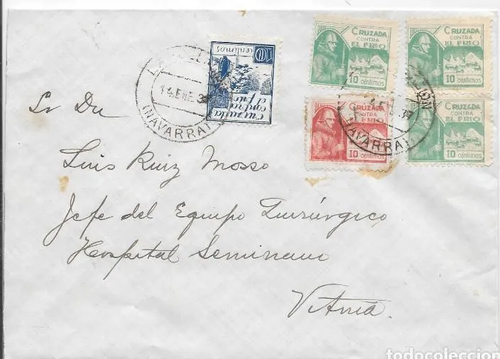 CRUZADA
CONTRA
EL FRIO
10 céntimos
CRUZADA
CONTRA
EL FRIO
10 céntimos
Cruzada
contra
el frio
céntimos
14 ENE 37
(NAVARRA)
CRUZADA
CONTRA
EL FRIO
10 céntimos
10 céntimos
ENE 37
(NAVARRA)
Sr Dr
Luis Ruiz Mosso
Jefe del Equipo Quirúrgico
Hospital Seminario
Vitoria
todocoleccion